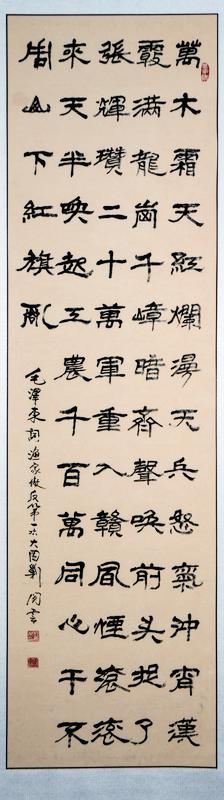 萬木霜天紅爛漫天兵怒氣沖宵漢
霧满龍崗千嶂暗齊聲喚前头捉了
張輝瓚二十萬軍重入贛風煙滚滚
來天半喚起工農千百萬同心干不
周山下紅旗亂
毛澤東詞渔家傲反第一次大围剿